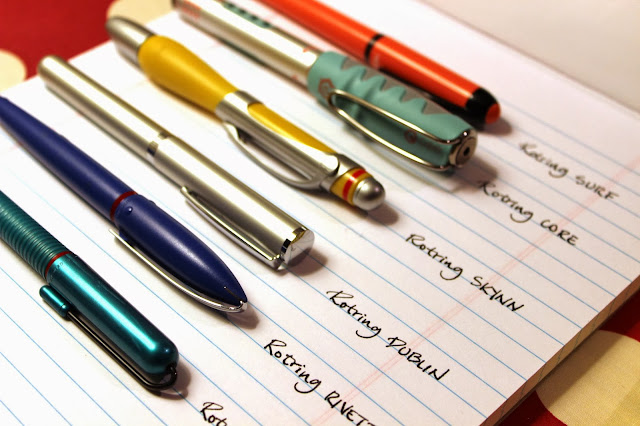 Rotring SURE
Rotring CORE
Rotring SKYNN
Rotring DUBLIN
Rotring